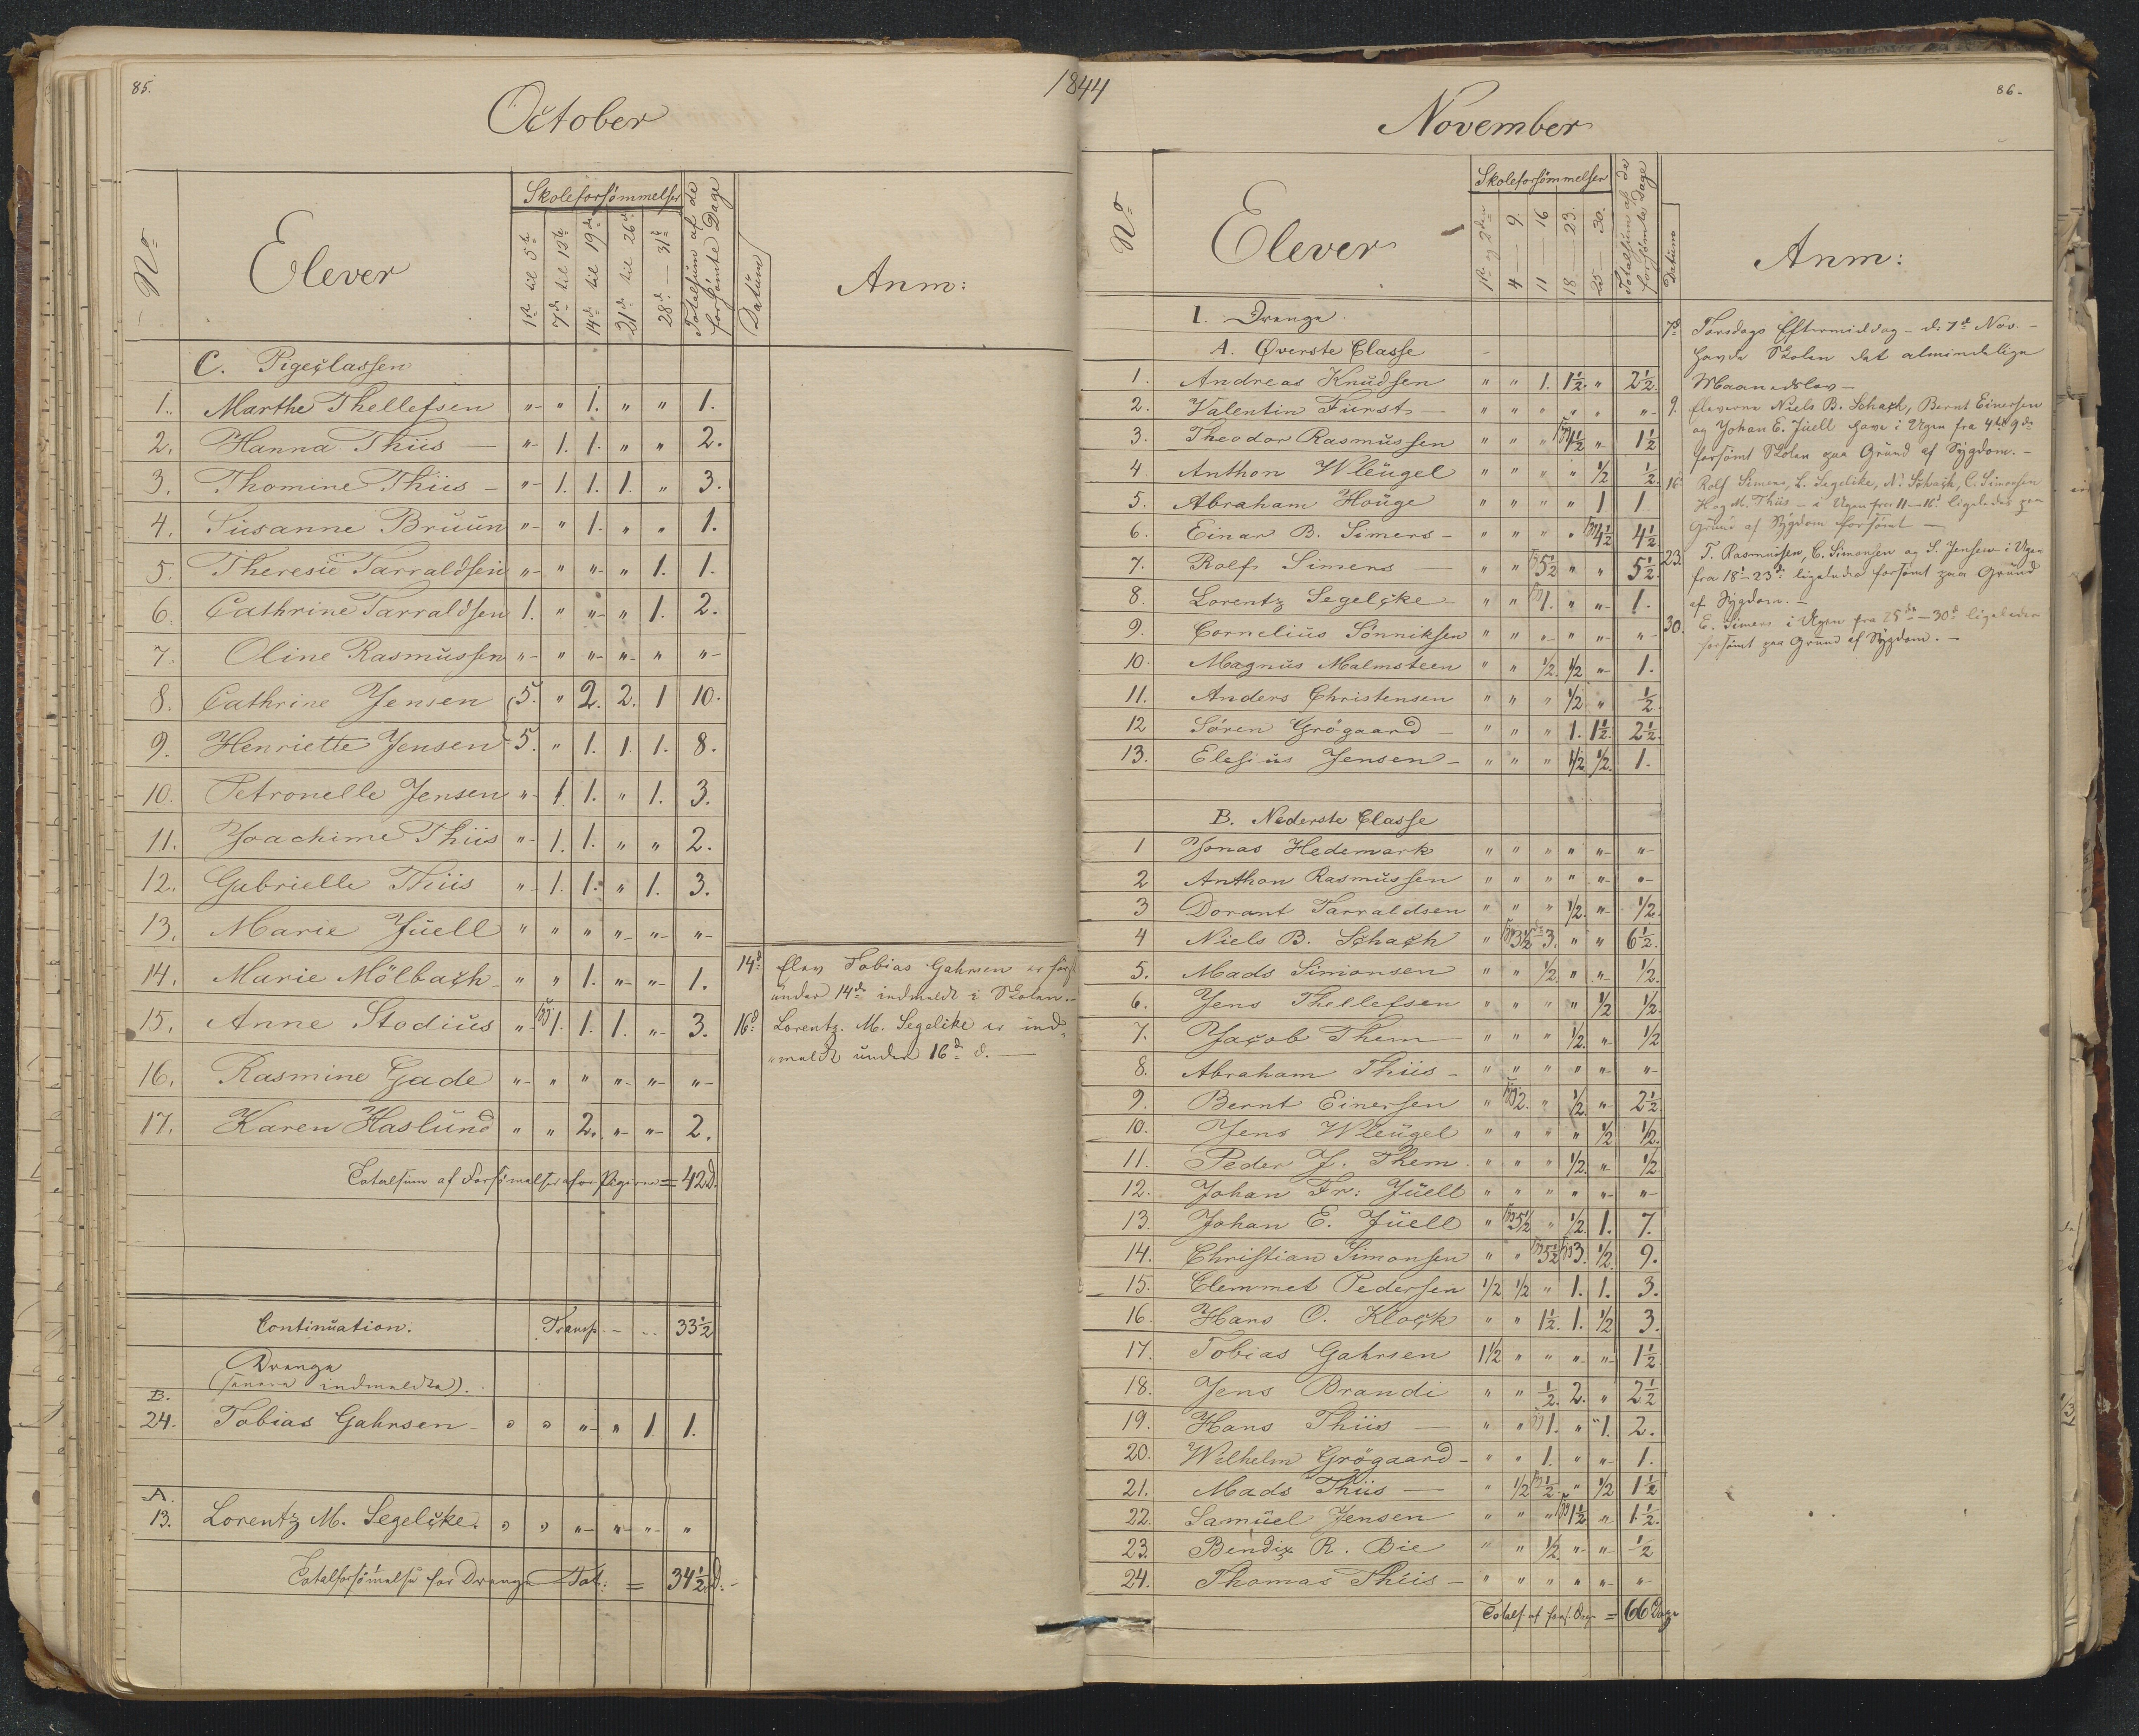 85.
1844
October
No
Elever
Skoleforsømmelser
1ste til 5te
7de til 12te
14de til 19de
21de til 26de
28de — 31te
Totalsum af de forsömte Dage
Datum
Anm:
C. Pigeclassen
1. Marthe Thellefsen " " 1. " " 1.
2. Hanna Thiis — " 1. 1. " " 2.
3. Thomine Thiis — " 1. 1. 1. " 3.
4. Susanne Bruun " " 1. " " 1.
5. Theresie Tarraldsen " " " " 1. 1.
6. Cathrine Tarraldsen 1. " " " 1. 2.
7. Oline Rasmussen " " " " " "
8. Cathrine Jensen 5. " 2. 2. 1 10.
9. Henriette Jensen 5. " 1. 1. 1. 8.
10. Petronelle Jensen " 1. 1. " 1. 3.
11. Joachime Thiis " 1. 1. " " 2.
12. Gabrielle Thiis " 1. 1. " 1. 3.
13. Marie Juell " " " " " "
14. Marie Mölbach " " 1. " " 1.
15. Anne Stodius " 1. 1. 1. " 3.
16. Rasmine Gade " " " " " "
17. Karen Haslund " " 2. " " 2.
Totalsum af Forsömelser for Pigerne = 42 D.
14de Elev Tobias Gahrsen er först
under 14de indmeldt i Skolen.
16de Lorentz. M. Segelcke er ind-
"meldt under 16de d. —
Continuation. Transp. — 33½
Drenge
(senere indmeldte).
B.
24. Tobias Gahrsen " " " " 1 1.
A.
13. Lorentz M. Segelcke. " " " " " "
Totalforsömelse for Drenge Tot: = 34½ D.
86.
November
No
Elever
Skoleforsömmelser
1ste og 2den
4 — 9.
11 — 16
18 — 23.
25 — 30.
Totalsum af de forsömte Dage
Datum
Anm:
I. Drenge.
A. Øverste Classe
1. Andreas Knudsen " " 1. 1½. " 2½.
2. Valentin Fürst — " " " " " "
3. Theodor Rasmussen " " " 1½ " 1½
4. Anthon Wleügel " " " " ½ ½.
5. Abraham Houge " " " " 1 1.
6. Einar B. Simers — " " " " 4½ 4½
7. Rolf Simers — " " 5½ " " 5½.
8. Lorentz Segelcke " " 1. " " 1.
9. Cornelius Sönniksen " " " " " "
10. Magnus Malmsteen " " ½. ½ " 1.
11. Anders Christensen " " " ½ " ½.
12 Sören Grögaard — " " " 1. 1½. 2½.
13. Elesius Jensen — " " " ½ ½. 1.
B. Nederste Classe
1 Jonas Hedemark " " " " " "
2 Anthon Rasmussen " " " " " "
3 Dorant Tarraldsen " " " ½. " ½.
4 Niels B. Schach " 3½ 3. " " 6½.
5. Mads Simonsen " " ½ " " ½.
6. Jens Thellefsen " " " " ½ ½.
7. Jacob Them " " " ½. " ½
8. Abraham Thiis — " " " " " "
9. Bernt Einersen " 2. " ½. " 2½
10. Jens Wleügel " " " " ½ ½.
11. Peder J. Them. " " " ½. " ½
12. Johan Fr: Jüell " " " " " "
13. Johan E. Jüell " 5½ " ½ 1. 7.
14. Christian Simonsen " " 5½ 3. ½ 9.
15. Clemmet Pedersen ½ ½ " 1. 1. 3.
16. Hans O. Klock " " 1½. 1. ½ 3.
17. Tobias Gahrsen 1½ " " " " 1½
18. Jens Brandi " " ½. 2. " 2½
19. Hans Thiis — " " 1. " 1. 2.
20. Wilhelm Grögaard — " " 1. " " 1.
21. Mads Thiis — " ½ ½ " ½ 1½
22. Samüel Jensen " " " 1½ " 1½.
23. Bendix R. Bie " " ½. " " ½
24. Thomas Thiis — " " " " " "
Totals. af fors. Dage = 66 Dage
7de Torsdags Eftermiddag — d: 7de Nov. —
havde Skolen det almindelige
Maanedslov —
9. Eleverne Niels B. Schach, Bernt Einersen
og Johan E. Jüell have i Ugen fra 4de–9de
forsömt Skolen paa Grund af Sygdom. —
16. Rolf Simers, L. Segelcke, N. Schach, C. Simonsen
H og M. Thiis — i Ugen fra 11–16de ligeledes paa
Grund af Sygdom forsömt —
23. T. Rasmussen, C. Simonsen og S. Jensen i Ugen
fra 18de–23de ligeledes forsömt paa Grund
af Sygdom. —
30. E. Simers i Ugen fra 25de — 30de ligeledes
forsömt paa Grund af Sygdom. —